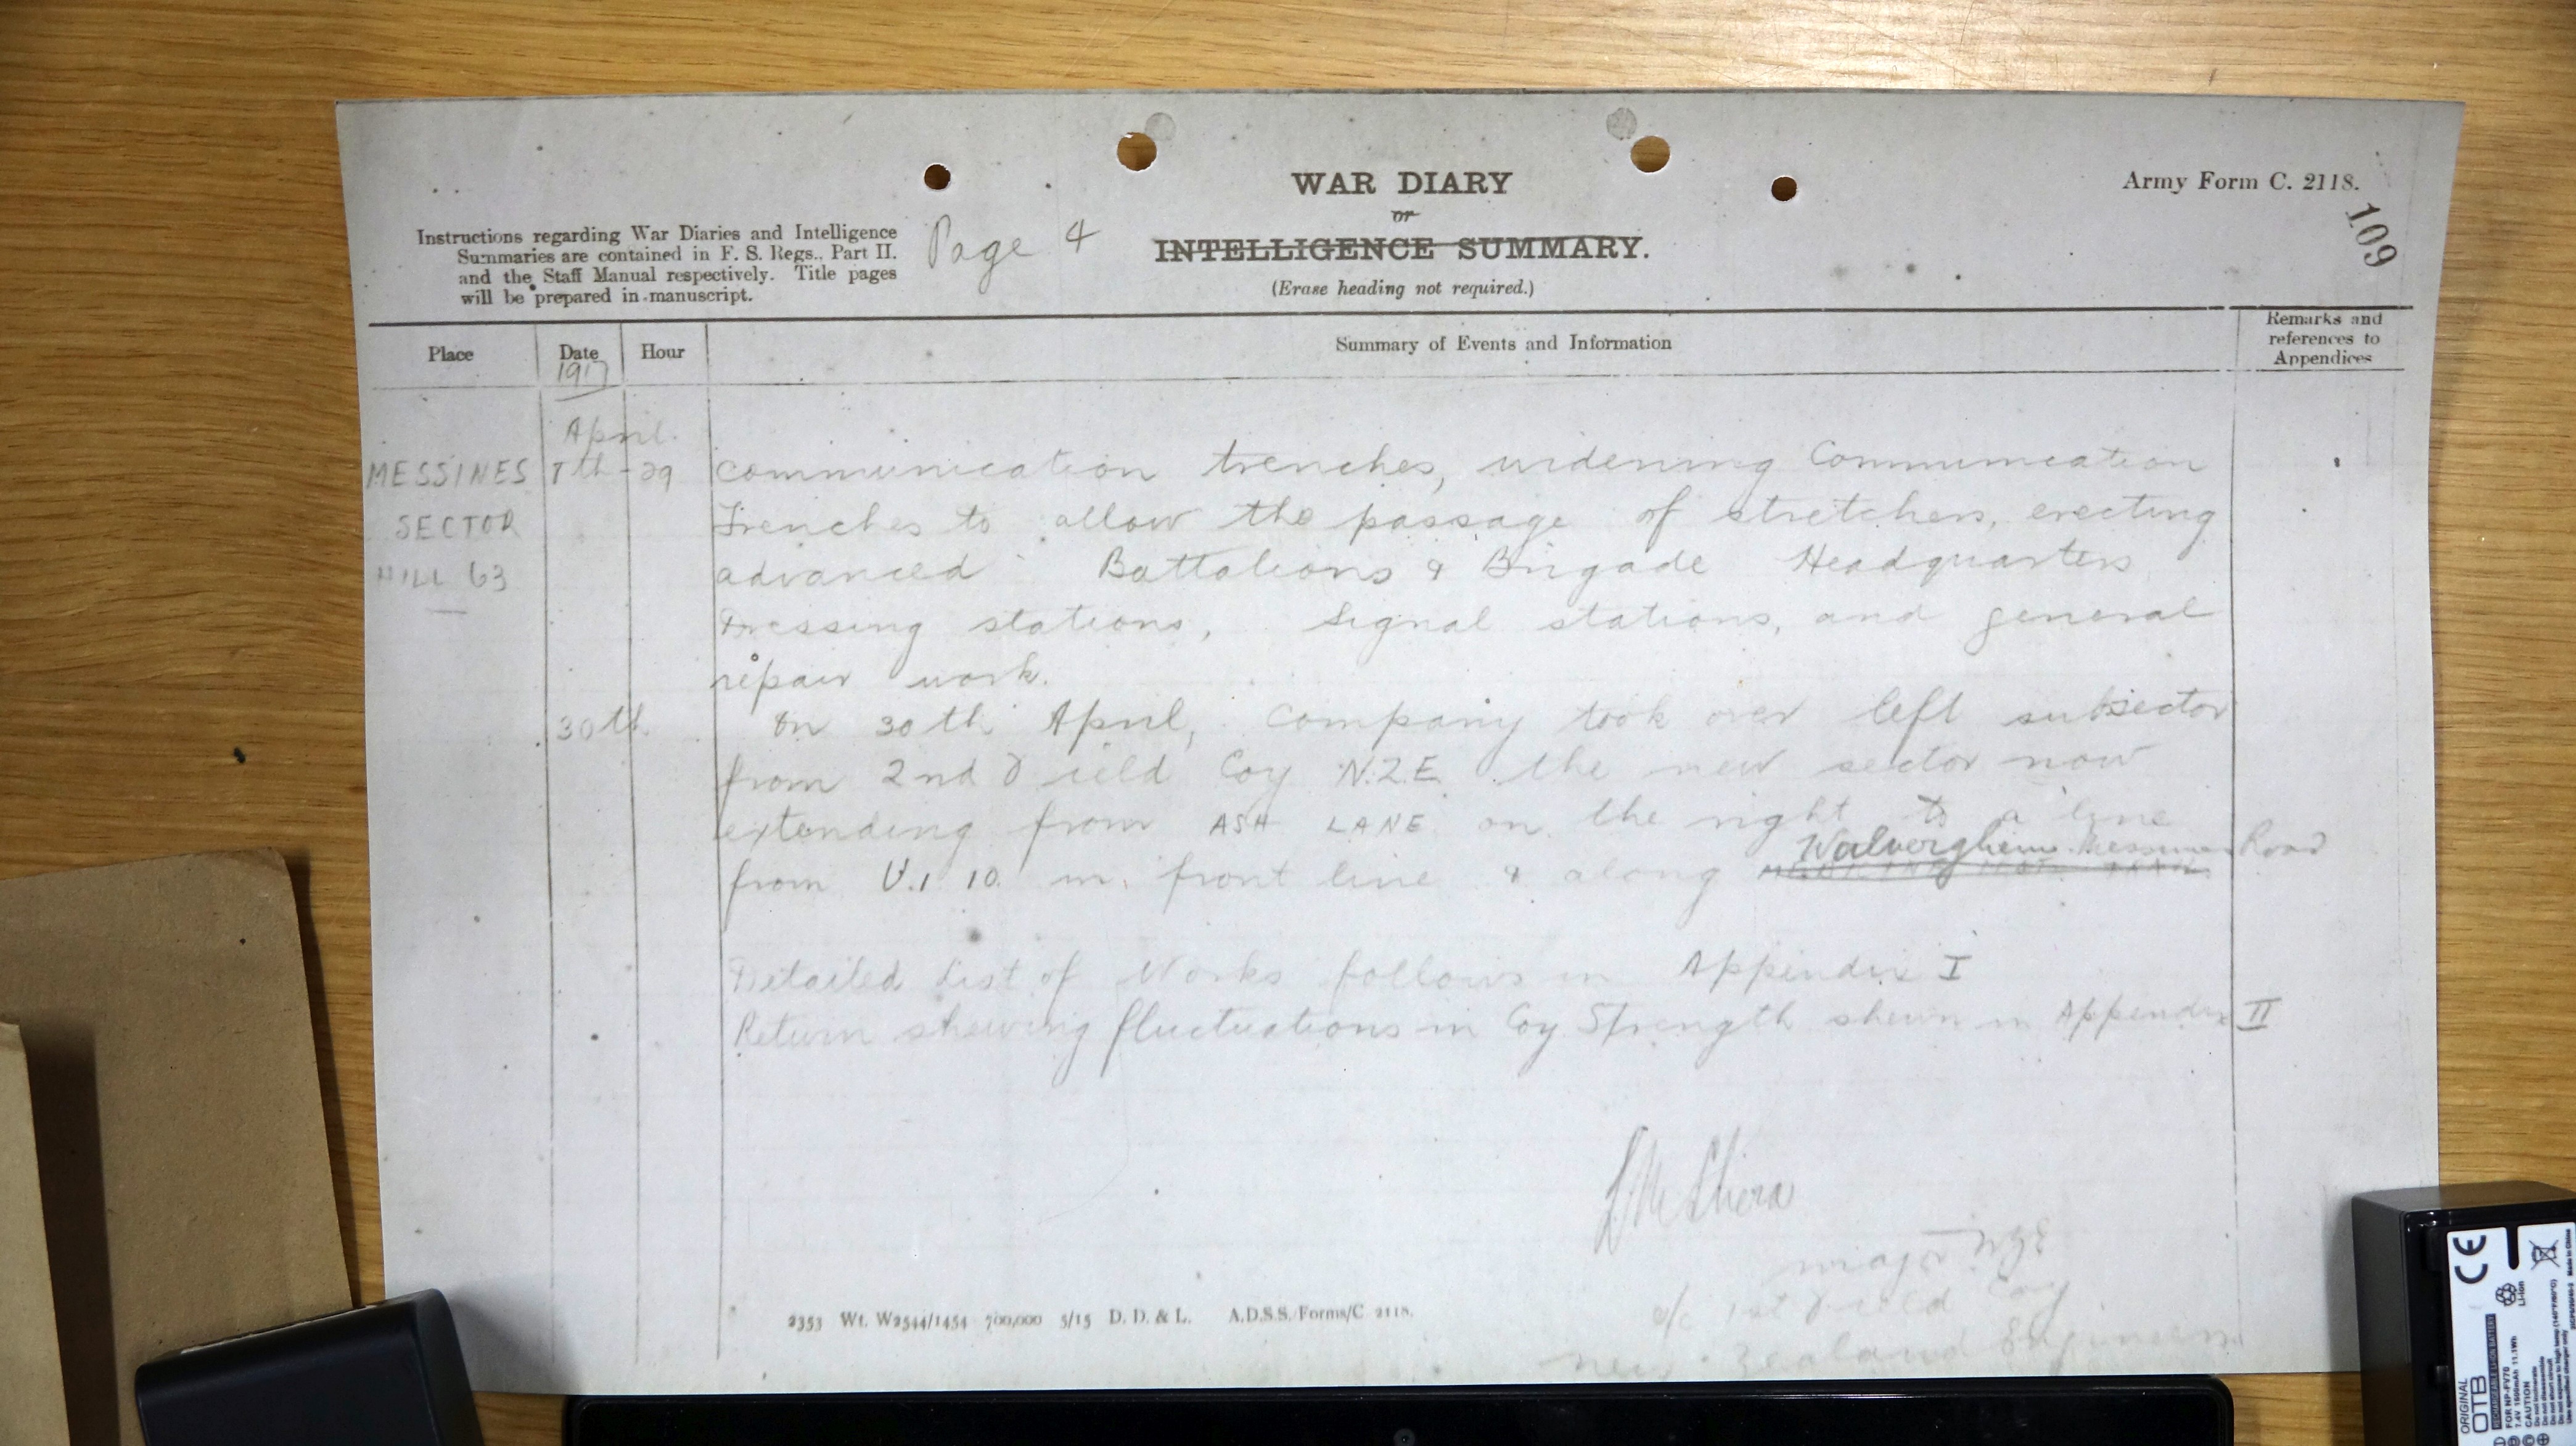 WAR DIARY
or
INTELLIGENCE SUMMARY.
(Erase heading not required.)
Army Form C. 2118.
109
Instructions regarding War Diaries and Intelligence
Summaries are contained in F. S. Regs., Part II.
and the Staff Manual respectively. Title pages
will be prepared in manuscript.
Page 4
Place
Date
1917
Hour
Summary of Events and Information
Remarks and
references to
Appendices
April.
MESSINES
SECTOR
HILL 63
7th - 29
communication trenches, widening Communication
Trenches to allow the passage of stretchers, erecting
advanced Battalions & Brigade Headquarters
Dressing stations, Signal stations, and general
repair work.
30th
On 30th April, Company took over left subsector
from 2nd Field Coy N.Z.E. the new sector now
extending from ASH LANE on the right to a line
from U.1.10. in front line & along Wulverghem Messines Road
Detailed List of Works follows in Appendix I
Return shewing fluctuations in Coy Strength shewn in Appendix II
Major NZE
o/c 1st Field Coy
New Zealand Engineers
2353 Wt. W2544/1454 700,000 5/15 D. D. & L. A.D.S.S./Forms/C 2118.
CE
Li-ion
ORIGINAL
OTB
FOR NP-FV70
CAUTION